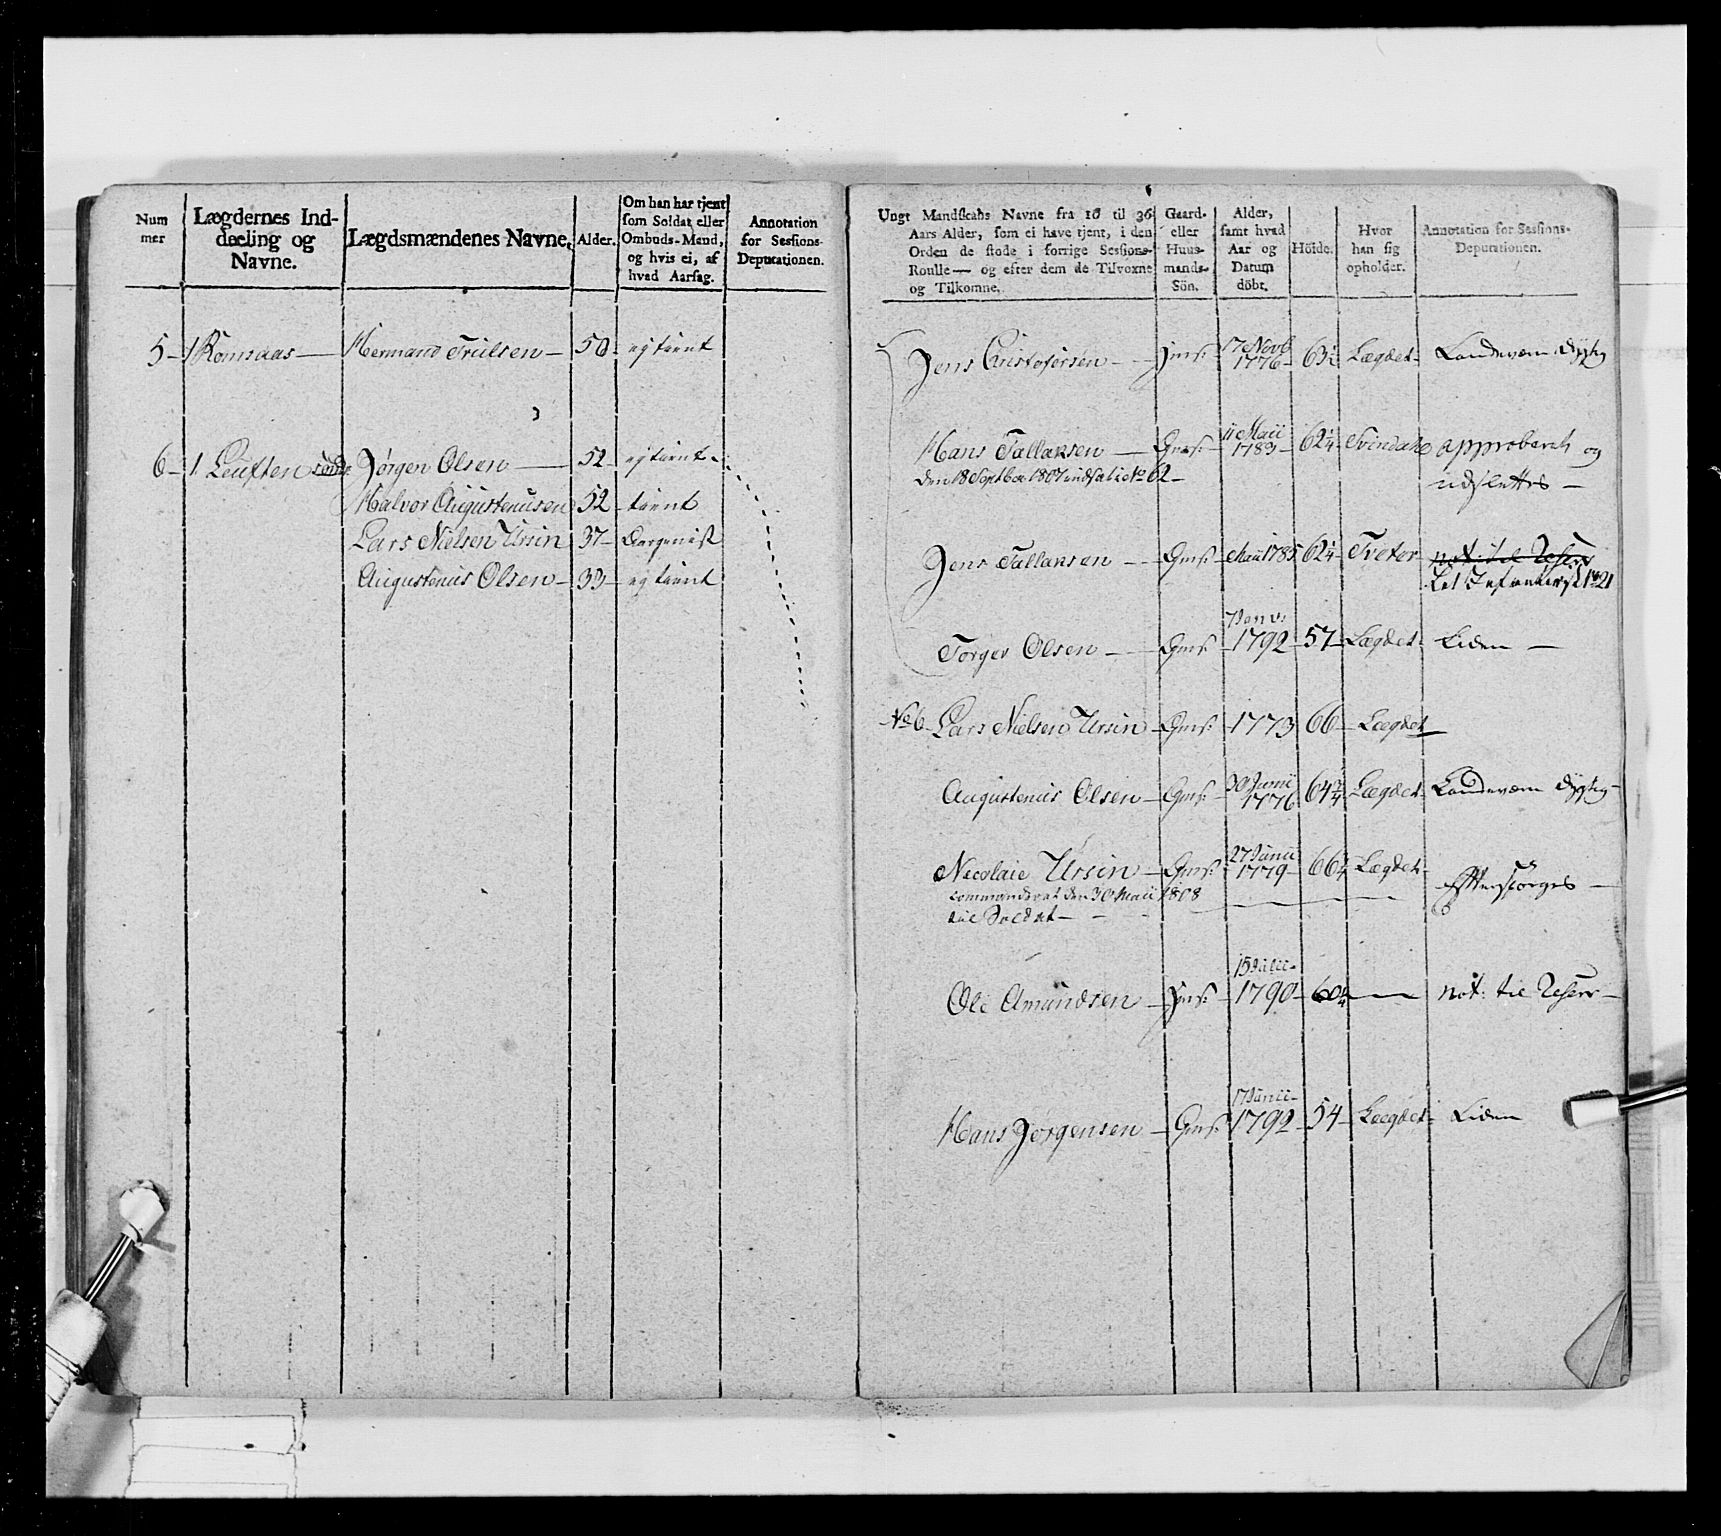 Num
mer
Lægdernes Ind-
deeling og
Navne.
Lægdsmændenes Navne.
Alder.
Om han har tjent
som Soldat eller
Ombuds-Mand,
og hvis ei, af
hvad Aarsag.
Annotation
for Sessions-
Deputationen.
5 - 1 Romsaas — Hermand Trulsen — 50 - ej tient
6 - 1 Leuften søndr Jørgen Olsen — 52 - ej tient
Halvor Augustenusen 52 - tient
Lars Nielsen Ursin 37 -
Augustenus Olsen - 33 - ej tient
Ungt Mandskabs Navne fra 16 til 36
Aars Alder, som ei have tjent, i den
Orden de stode i forrige Sessions-
Roulle — og efter dem de Tilvoxne
og Tilkomne.
Gaard-
eller
Huus-
mands-
Sön.
Alder,
samt hvad
Aar og
Datum
döbt.
Höide.
Hvor
han sig
opholder.
Annotation for Sessions-
Deputationen.
17 Novb
Jens Christofersen - Hms: 1776 - 63½ Lægdet - Landeværn dygtig
11 Maii
Hans Tallaksen — Gms: - 1783 - 62¼ Svindal approberet og
den 18 Septber 1807 indsat ic No 62 -
udslettes —
Jens Tallaksen — Gms: Maii 1785 62¼ Tveter not: til Reserv
1821
7 Janv:
Torger Olsen — Gms: - 1792 - 57 - Lægdet - Liden —
No 6 - Lars Nielsen Ursin - Gms: - 1773 66 - Lægdet
30 Junii
Augustenus Olsen - Gms: - 1776 64¾ Lægdet - Landeværn dygtig -
27 Junii
Nicolaie Ursin - Gms: - 1779 - 66¼ Lægdet - Efterspørges —
commanderet den 30 Maii 1808
til Soldat -
15 Julii -
Ole Amundsen - Hms: - 1790 - 60¼ — not: til Reserv —
17 Junii -
Hans Jørgensen - Gms: 1792 - 54 - Lægdet - Liden